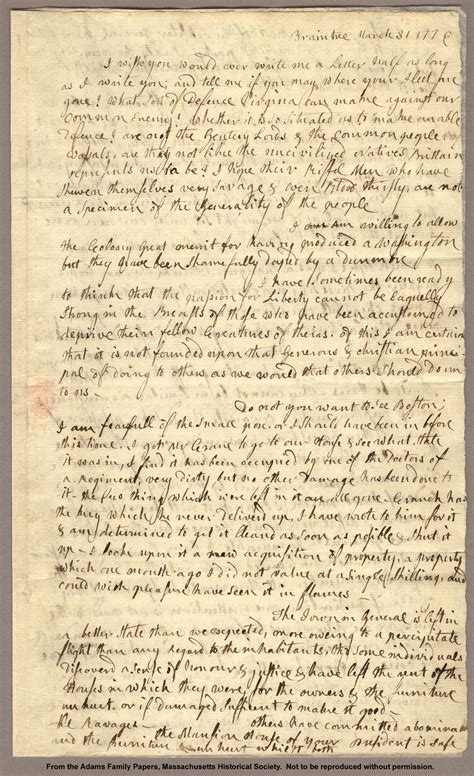 Braintree March 31 1776
I wish you would ever write me a Letter half as long
as I write you; and tell me if you may where your Fleet are
gone? What sort of Defence Virginia can make against our
common Enemy? Whether it is so situated as to make an able
Defence? are not the Gentery Lords & the common people
vassals, are they not like the uncivilized Natives Brittain
represents us to be? I hope their Riffel Men who have
shewen themselves very savage & even Blood thirsty; are not
a specimen of the Generality of the people
I am willing to allow
the Colony great merrit for having produced a Washington
but they have been shamefully duped by a Dunmore
I have sometimes been ready
to think that the passion for Liberty cannot be Eaquelly
strong in the Breasts of those who have been accustomed to
deprive their fellow Creatures of theirs. of this I am certain
that it is not founded upon that generous & christian princi
pal of doing to others as we would that others should do un
to us
Do not you want to see Boston;
I am fearfull of the small pox, or I should have been in before
this time. I got Mr Crane to go to our House & see what state
it was in, I find it has been occupied by one of the Doctors of
a Regiment, very dirty, but no other Damage has been done to
it. the few things which were left in it are all gone. Cranch has
the key which he never deliverd up, I have wrote to him for it
& am determined to get it cleand as soon as posible & shut it
up. I look upon it a new acquisition of property, a property
which one month ago I did not value at a single Shilling, and
could with pleasure have seen it in flames
The Town in General is left in
a better state than we expected, more oweing to a percipitate
flight than any Regard to the inhabitants, tho some individuals
discoverd a sense of honour & justice & have left the rent of the
Houses in which they were, for the owners & the furniture
unhurt, or if damaged sufficent to make it good
others have committed abomina
Ravages
the Mansion House of your president is safe
and the furniture unhurt whilst both
From the Adams Family Papers, Massachusetts Historical Society. Not to be reproduced without permission.